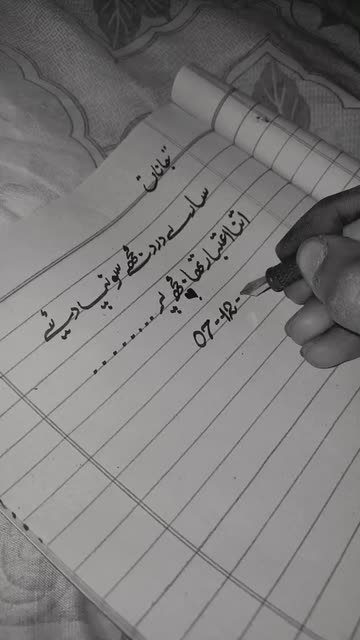 جاناں
سارے درد تجھے سونپ دیئے
اتنا اعتبار تھا تجھ پر........
07-12-